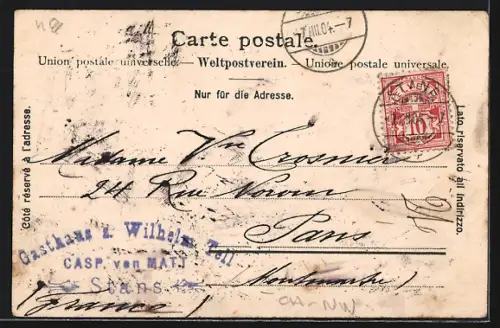 Carte postale.
Union postale universelle. – Weltpostverein. – Unione postale universale.
Nur für die Adresse.
Côté réservé à l'adresse.
Lato riservato all indirizzo.
10
Madame Vve Crosnier
24 Rue
Paris
(France)
Gasthaus z. Wilhelm Tell
CASP. von MATT
Stans
CH-NW